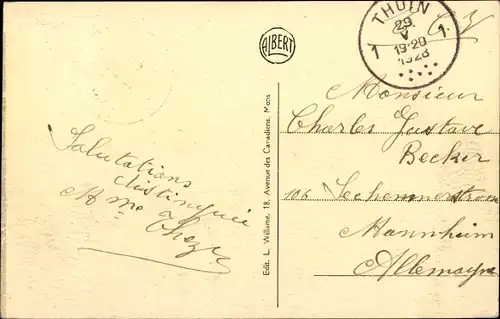 ALBERT
THUIN
29
V
19-20
1928
1 1
Salutations
distinguées
Mme
Edit. L. Willame, 18, Avenue des Canadiens, Mons
Monsieur
Charles Gustave
Becker
106
Mannheim
Allemagne